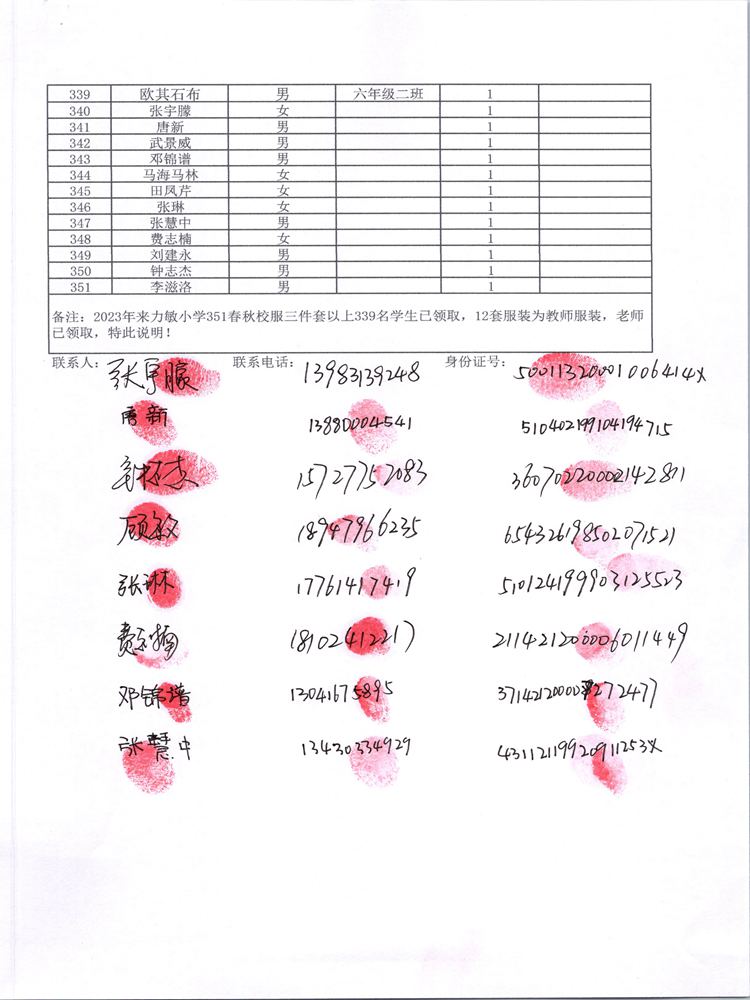 339 欧其石布 男 六年级二班 1
340 张宇朦 女 1
341 唐新 男 1
342 武景威 男 1
343 邓锦谱 男 1
344 马海马林 女 1
345 田凤芹 女 1
346 张琳 女 1
347 张慧中 男 1
348 费志楠 女 1
349 刘建永 男 1
350 钟志杰 男 1
351 李滋洛 男 1
备注：2023年来力敏小学351春秋校服三件套以上339名学生已领取，12套服装为教师服装，老师
已领取，特此说明！
联系人：张宇朦 联系电话：13983139248 身份证号：50011320001006414x
唐新 13880004541 510402199104194715
钟志杰 15727752083 360702200002142811
顾敏 18947966235 654326198502071521
张琳 17761417419 510124199903125523
费志楠 18102412217 211421200006011449
邓锦谱 13041675895
张慧中 13430334929 43112119920911253x